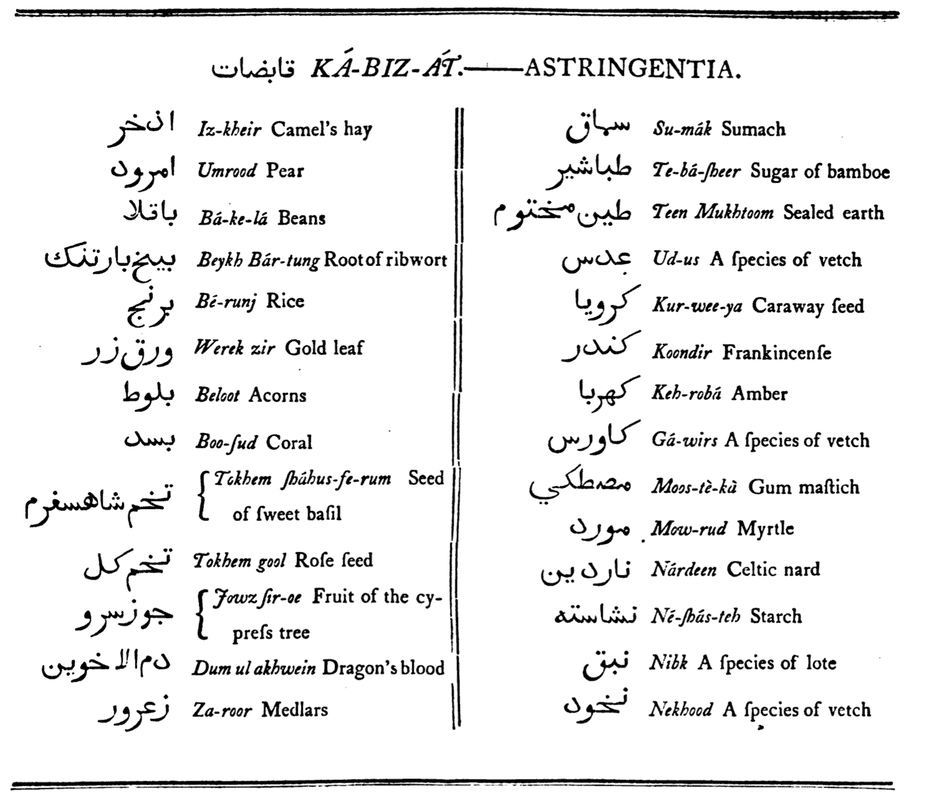 قابضات KÁ-BIZ-ÁT.——ASTRINGENTIA.
اذخر Iz-kheir Camel's hay
امرود Umrood Pear
باقلا Bá-ke-lá Beans
بیخ بارتنک Beykh Bár-tung Root of ribwort
برنج Bé-runj Rice
ورق زر Werek zir Gold leaf
بلوط Beloot Acorns
بسد Boo-ſud Coral
تخم شاهسفرم { Tokhem ſháhus-fe-rum Seed
of ſweet baſil
تخم کل Tokhem gool Roſe ſeed
جوز سرو { Jowz ſir-oe Fruit of the cy-
preſs tree
دم الاخوین Dum ul akhwein Dragon's blood
زعرور Za-roor Medlars
سماق Su-mák Sumach
طباشیر Te-bá-ſheer Sugar of bamboe
طین مختوم Teen Mukhtoom Sealed earth
عدس Ud-us A ſpecies of vetch
کرویا Kur-wee-ya Caraway ſeed
کندر Koondir Frankincenſe
کهربا Keh-robá Amber
کاورس Gá-wirs A ſpecies of vetch
مصطکي Moos-tè-kà Gum maſtich
مورد Mow-rud Myrtle
ناردین Nárdeen Celtic nard
نشاسته Né-ſhás-teh Starch
نبق Nibk A ſpecies of lote
نخود Nekhood A ſpecies of vetch